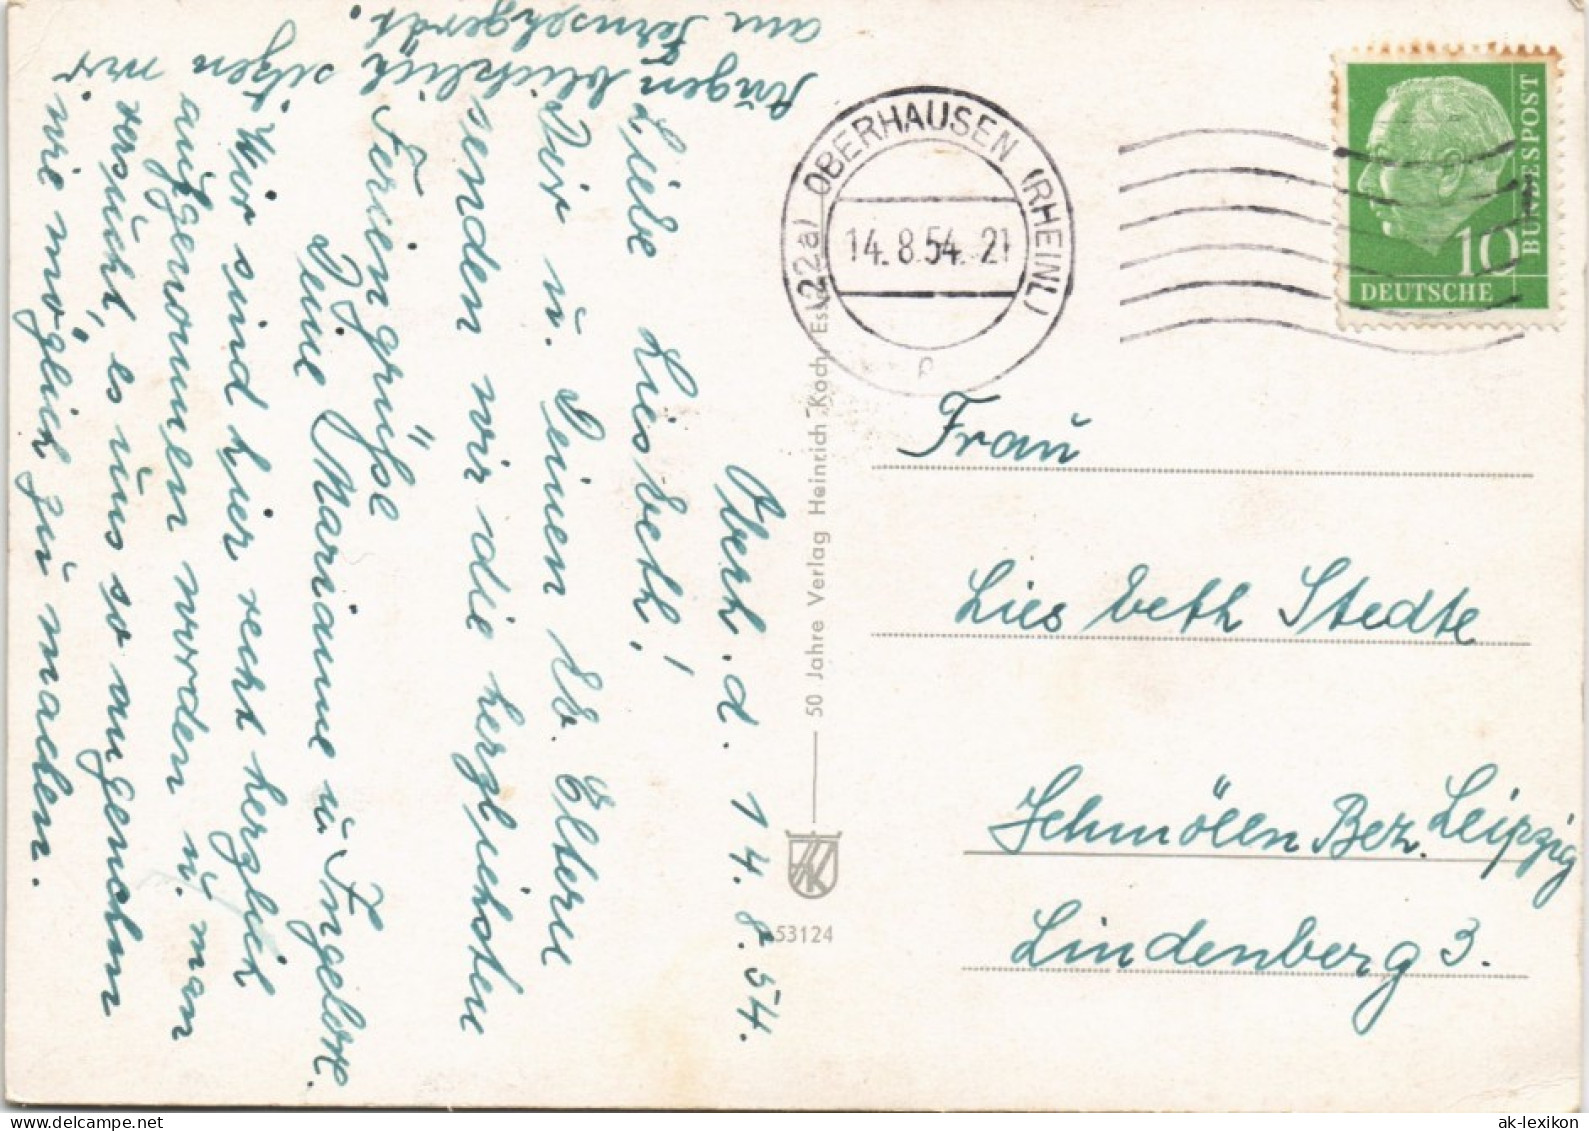 Oberh. d. 14.8.54.
Liebe Liesbeth!
Dir u. Deinen lb. Eltern
senden wir die herzlichsten
Feriengrüße
Deine Marianne u. Ingelore.
Wir sind hier recht herzlich
aufgenommen worden u. man
versucht, es uns so angenehm
wie möglich zu machen.
Augenblicklich sitzen wir
am Fernsehgerät.
50 Jahre Verlag Heinrich Koch,
53124
(22a) OBERHAUSEN (RHEINL)
14.8.54. 21
DEUTSCHE BUNDESPOST
10
Frau
Liesbeth Stedte
Schmölln Bez. Leipzig
Lindenberg 3.
ak-lexikon